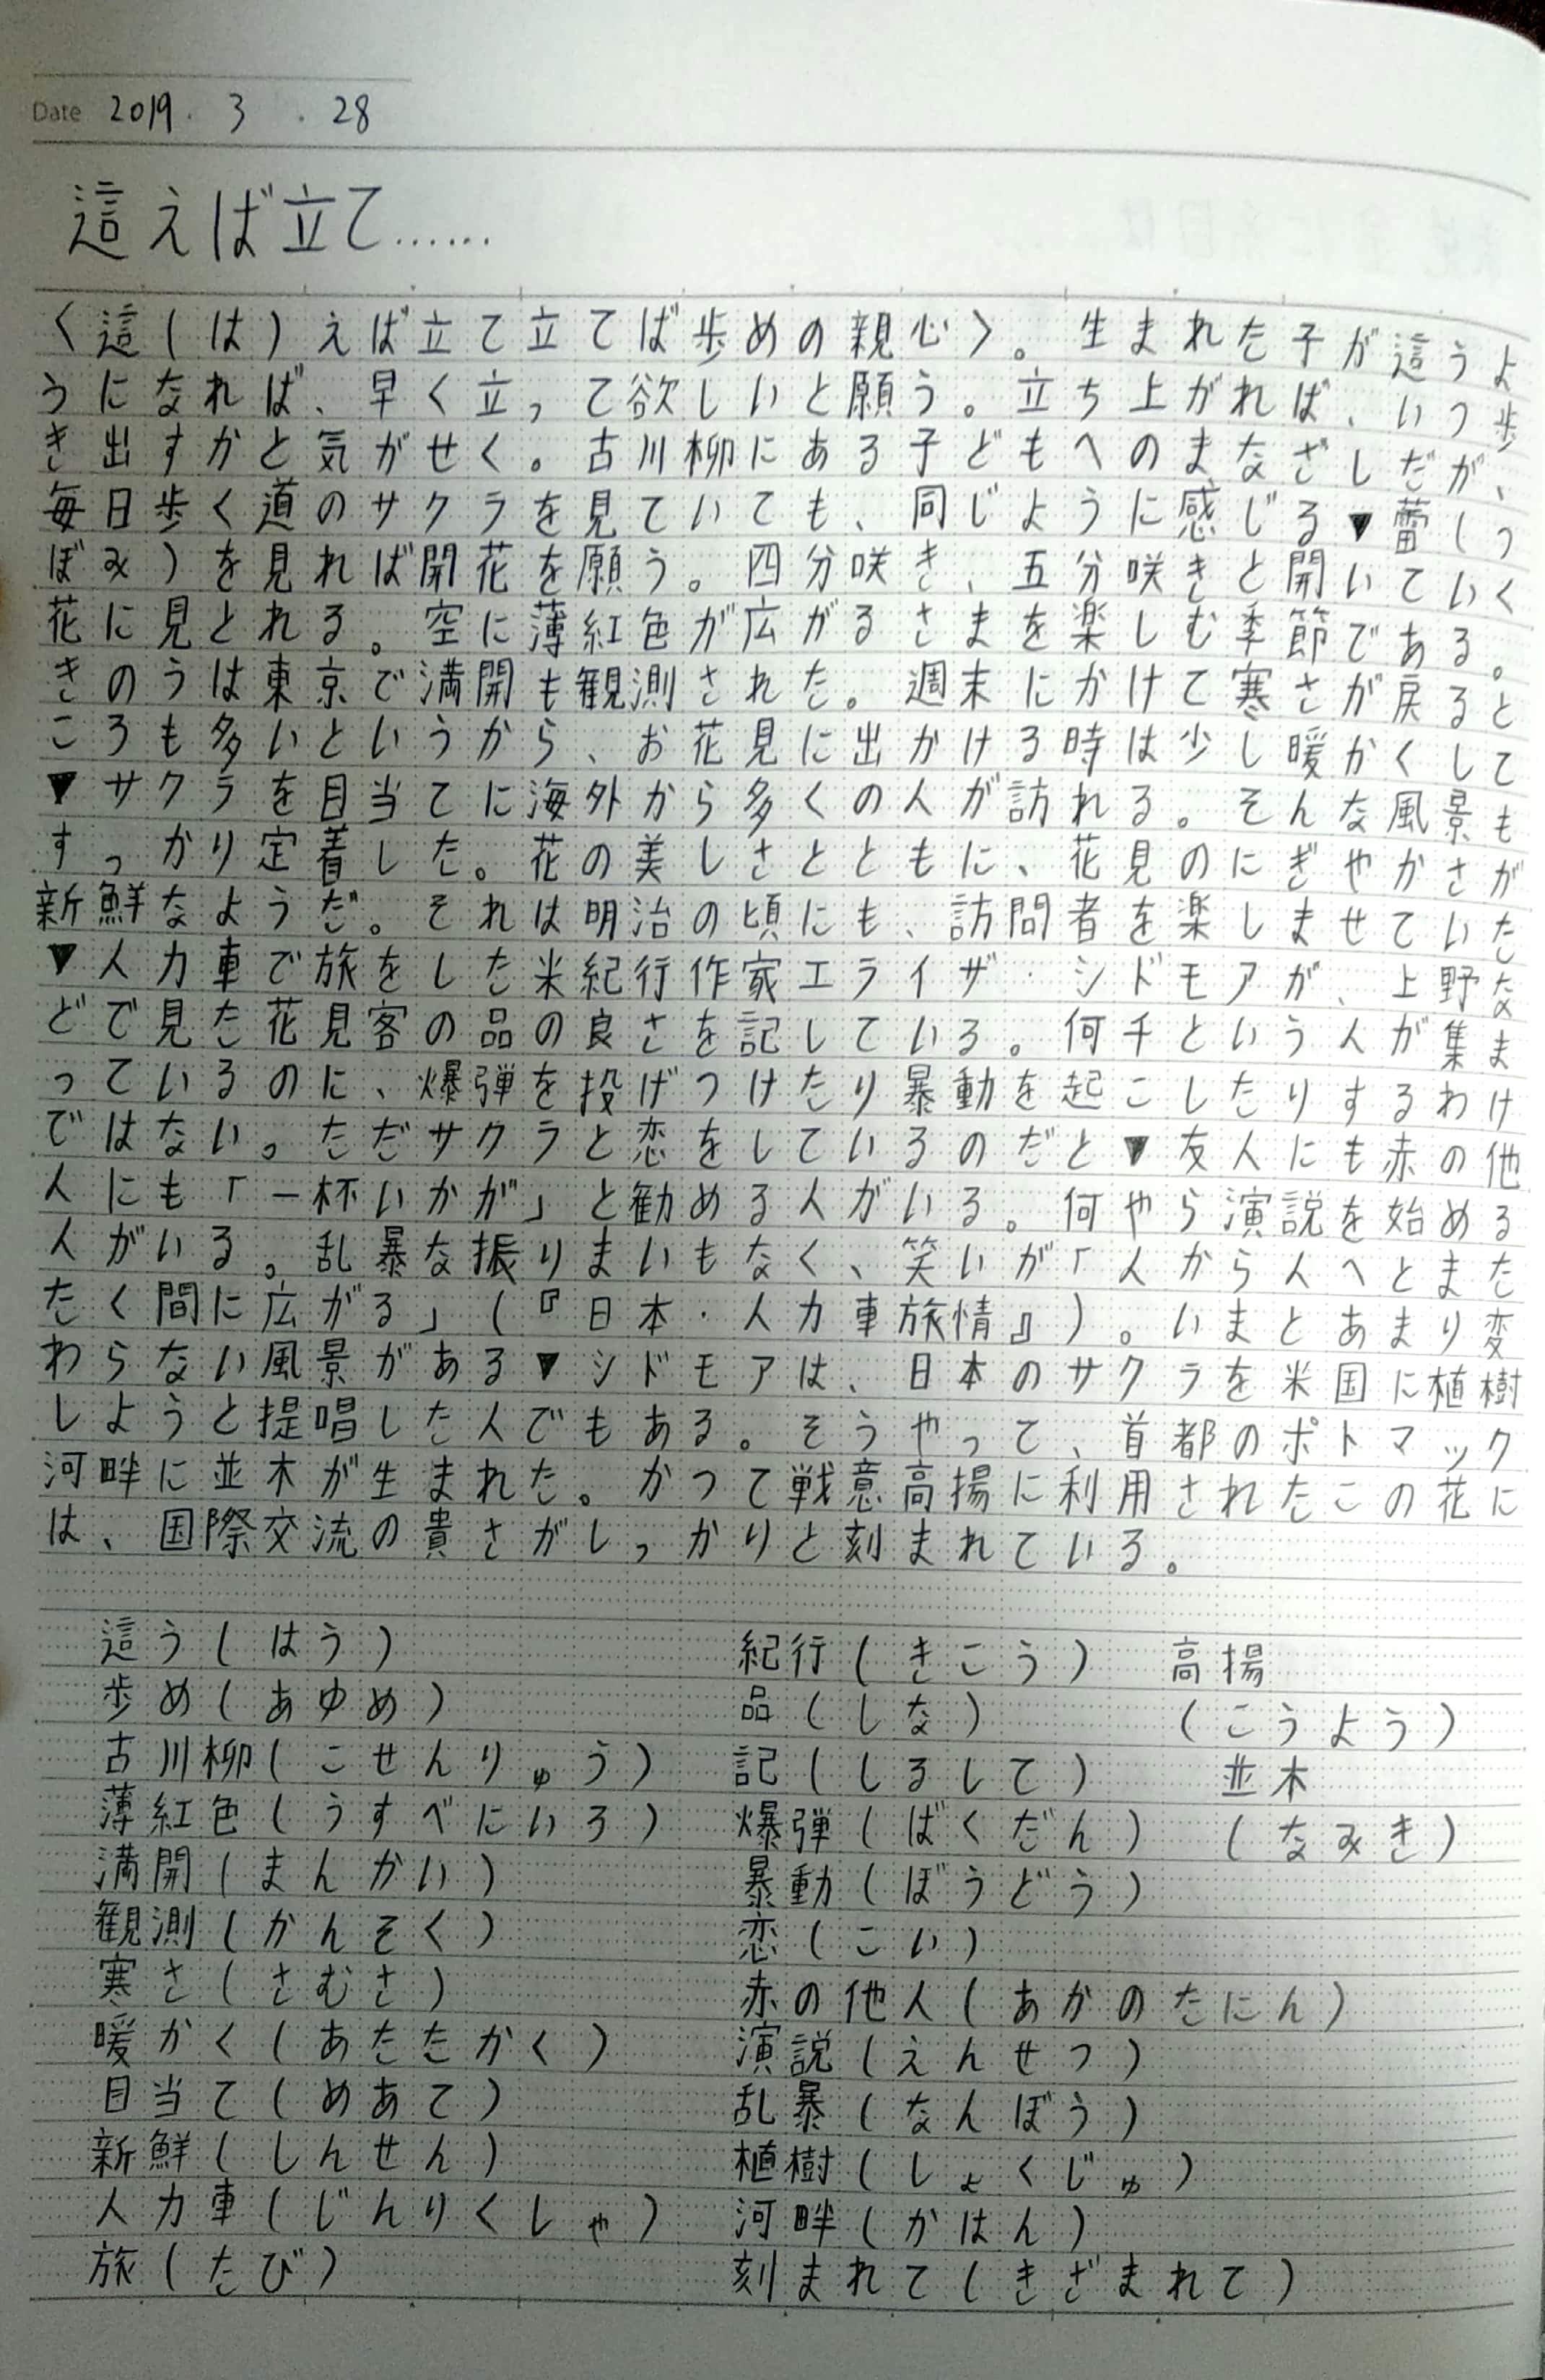 Date 2019. 3 . 28
這えば立て……
〈這(は)えば立て立てば歩めの親心〉。生まれた子が這うよ
うになれば、早く立って欲しいと願う。立ち上がれば、いつ歩
き出すかと気がせく。古川柳にある子どもへのまなざしだが、
毎日歩く道のサクラを見ていても、同じように感じる▼蕾(つ
ぼみ)を見れば開花を願う。四分咲き、五分咲きと開いていく
花に見とれる。空に薄紅色が広がるさまを楽しむ季節である。
きのうは東京で満開も観測された。週末にかけて寒さが戻ると
ころも多いというから、お花見に出かける時は少し暖かくして
▼サクラを目当てに海外から多くの人が訪れる。そんな風景も
すっかり定着した。花の美しさとともに、花見のにぎやかさが
新鮮なようだ。それは明治の頃にも、訪問者を楽しませていた
▼人力車で旅をした米紀行作家エライザ・シドモアが、上野な
どで見た花見客の品の良さを記している。何千という人が集ま
っているのに、爆弾を投げつけたり暴動を起こしたりするわけ
ではない。ただサクラと恋をしているのだと▼友人にも赤の他
人にも「一杯いかが」と勧める人がいる。何やら演説を始める
人がいる。乱暴な振りまいもなく、笑いが「人から人へとまた
たく間に広がる」(『日本・人力車旅情』)。いまとあまり変
わらない風景がある▼シドモアは、日本のサクラを米国に植樹
しようと提唱した人でもある。そうやって、首都のポトマック
河畔に並木が生まれた。かつて戦意高揚に利用されたこの花に
は、国際交流の貴さがしっかりと刻まれている。
這う(はう)
歩め(あゆめ)
古川柳(こせんりゅう)
薄紅色(うすべにいろ)
満開(まんかい)
観測(かんそく)
寒さ(さむさ)
暖かく(あたたかく)
目当て(めあて)
新鮮(しんせん)
人力車(じんりくしゃ)
旅(たび)
紀行(きこう)
品(しな)
記(しるして)
爆弾(ばくだん)
暴動(ぼうどう)
恋(こい)
赤の他人(あかのたにん)
演説(えんせつ)
乱暴(なんぼう)
植樹(しょくじゅ)
河畔(かはん)
刻まれて(きざまれて)
高揚
(こうよう)
並木
(なみき)